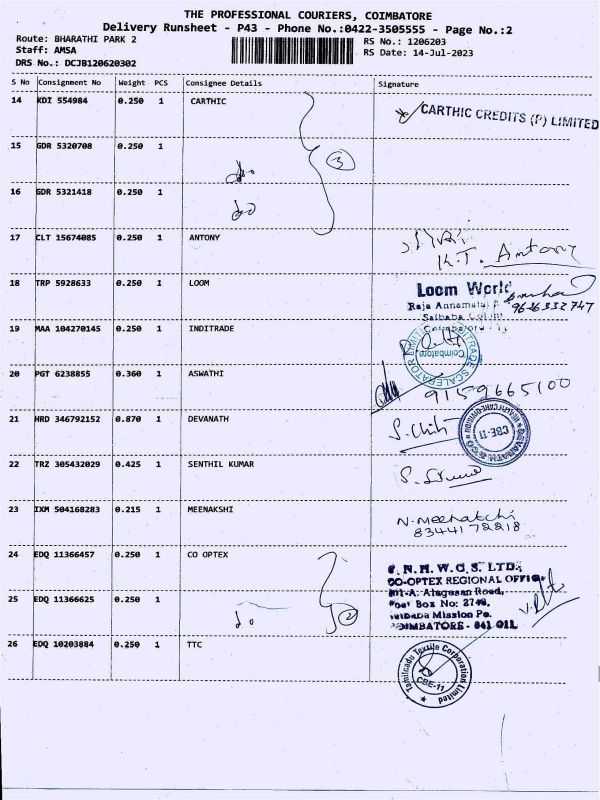 THE PROFESSIONAL COURIERS, COIMBATORE
Delivery Runsheet - P43 - Phone No.:0422-3505555 - Page No.:2
Route: BHARATHI PARK 2
RS No.: 1206203
Staff: AMSA
RS Date: 14-Jul-2023
DRS No.: DCJB120620302
S No Consignment No Weight PCS Consignee Details Signature
14 KDI 554984 0.250 1 CARTHIC
CARTHIC CREDITS (P) LIMITED
15 GDR 5320708 0.250 1
3
do
16 GDR 5321418 0.250 1
do
17 CLT 15674085 0.250 1 ANTONY
K.T. Antony
18 TRP 5928633 0.250 1 LOOM
Loom World
Raja Annamalai
9626332747
Saibaba Colony
Coimbatore - 11
19 MAA 104270145 0.250 1 INDITRADE
INDITRADE SCALERATOR LIMITED
Coimbatore
20 PGT 6238855 0.360 1 ASWATHI
9159665100
21 HRD 346792152 0.870 1 DEVANATH
DEVANATH & CO
HEALTH CARE DIVISION
CBE-11
22 TRZ 305432029 0.425 1 SENTHIL KUMAR
23 IXM 504168283 0.215 1 MEENAKSHI
N. Meenatchi
8344172218
24 EDQ 11366457 0.250 1 CO OPTEX
T.N.H.W.C.S. LTD.,
CO-OPTEX REGIONAL OFFICE
Alagesan Road,
25 EDQ 11366625 0.250 1
2
do
Post Box No: 2749,
Saibaba Mission Po.
COIMBATORE - 641 011.
26 EDQ 10203884 0.250 1 TTC
Tamilnadu Textile Corporation Limited
CBE-11